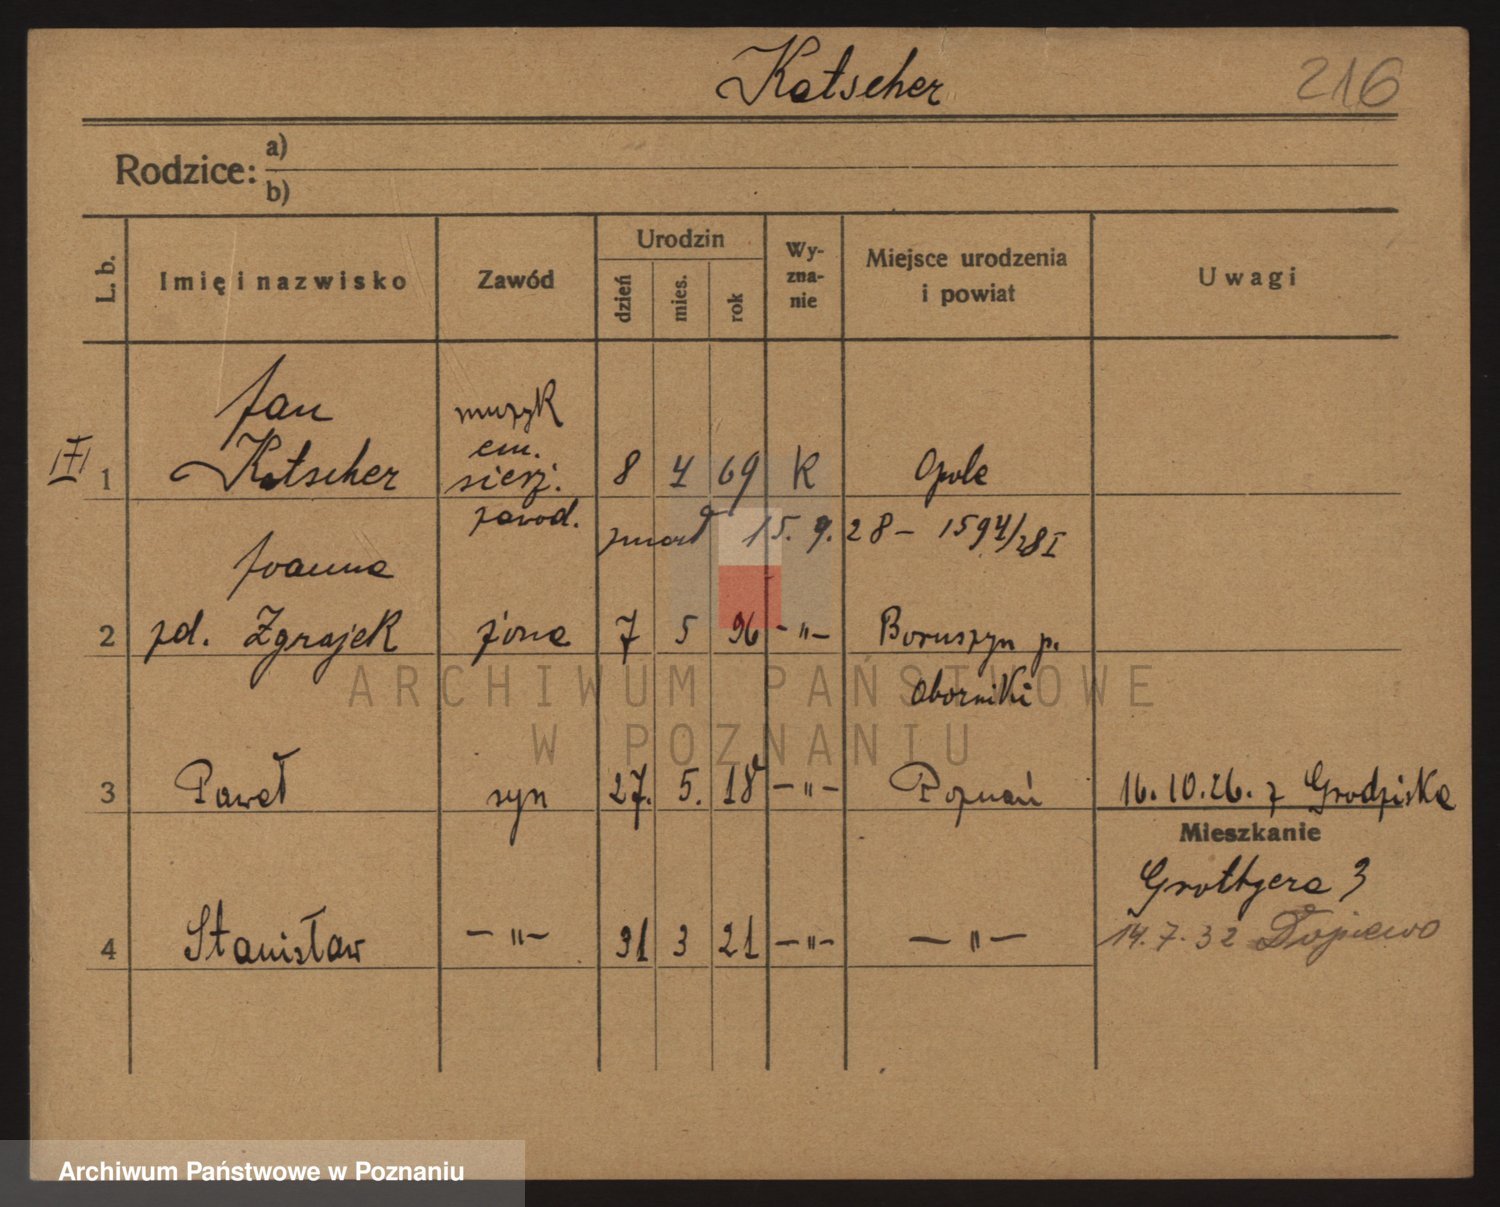 Katscher
216
Rodzice: a)
b)
L. b.
Imię i nazwisko
Zawód
Urodzin
dzień
mies.
rok
Wy-
zna-
nie
Miejsce urodzenia
i powiat
Uwagi
Jan
muzyk
em.
III 1 Katscher sierż. 8 4 69 K Opole
zawod.
zmarł 15. 9. 28 – 1594/28 I
Joanna
2 zd. Zgrajek żona 7 5 96 –"– Boruszyn p.
Oborniki
3 Paweł syn 27. 5. 18 –"– Poznań 16.10.26. z Grodziska
Mieszkanie
Grottgera 3
4 Stanisław –"– 31 3 21 –"– –"– 14.7.32 Dopiewo
ARCHIWUM PAŃSTWOWE
W POZNANIU
Archiwum Państwowe w Poznaniu